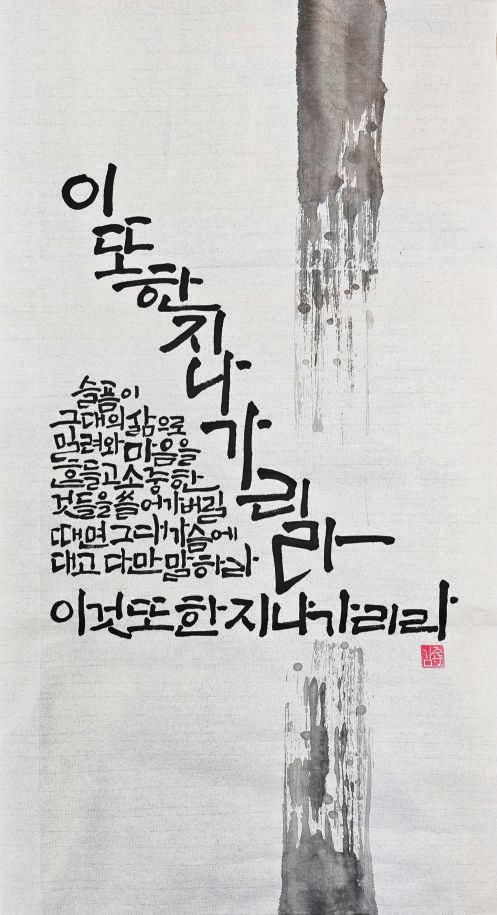 이
또
한
지
나
가
리
라
슬픔이
그대의 삶으로
밀려와 마음을
흔들고 소중한
것들을 쓸어가버릴
때면 그대 가슴에
대고 다만 말하라
이것 또한 지나가리라